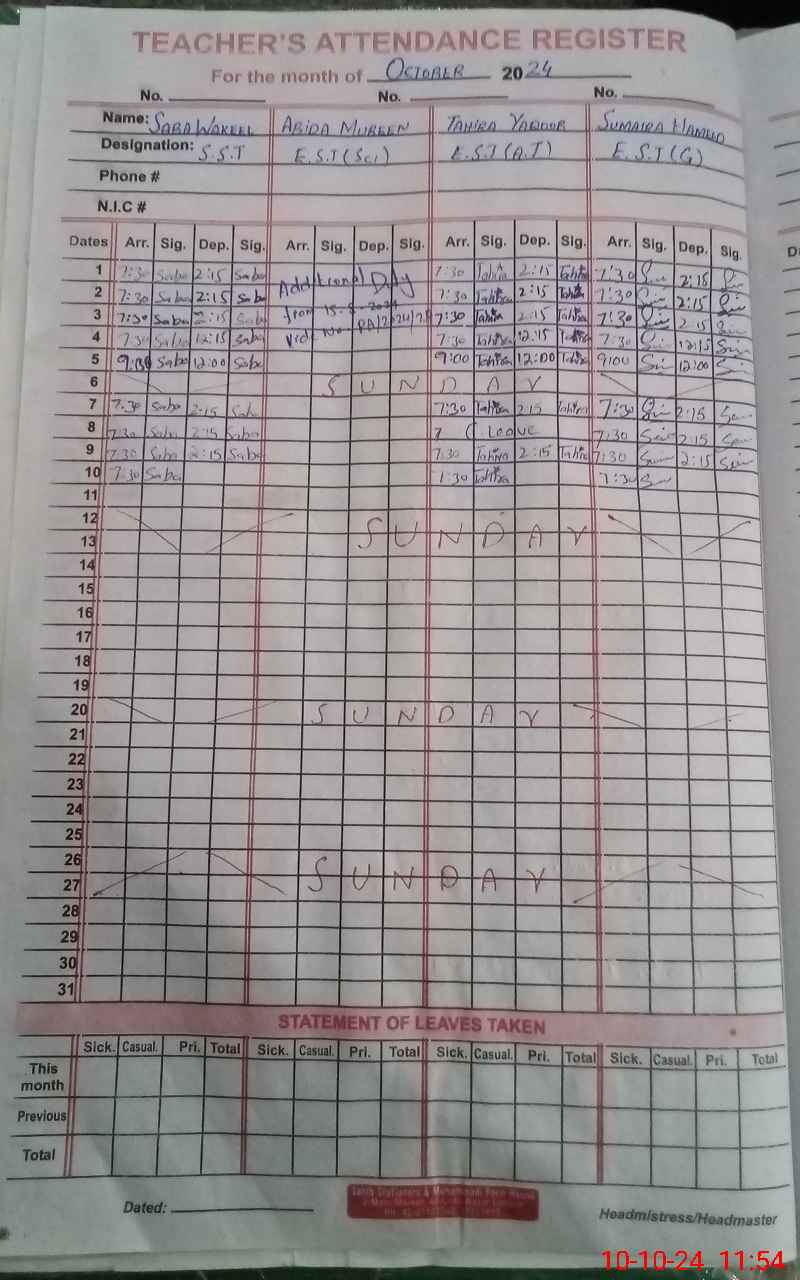 TEACHER'S ATTENDANCE REGISTER
For the month of October 2024
No. No. No.
Name: Saba Wakeel Abida Mubeen Tahira Yaqoob Sumaira Hameed
Designation: S.S.T E.S.T (Sci) E.S.T (A.T) E.S.T (G)
Phone #
N.I.C #
Dates Arr. Sig. Dep. Sig. Arr. Sig. Dep. Sig. Arr. Sig. Dep. Sig. Arr. Sig. Dep. Sig.
1 7:30 Saba 2:15 Saba Additional Day 7:30 Tahira 2:15 Tahira 7:30 2:15
2 7:30 Saba 2:15 Saba from 7:30 Tahira 2:15 Tahira 7:30 2:15
3 7:30 Saba 2:15 Saba No 7:30 Tahira 2:15 Tahira 7:30 2:15
4 7:30 Saba 12:15 Saba 7:30 Tahira 12:15 Tahira 7:30 12:15
5 9:00 Saba 12:00 Saba 9:00 Tahira 12:00 Tahira 9:00 12:00
6 SUNDAY
7 7:30 Saba 2:15 Saba 7:30 Tahira 2:15 Tahira 7:30 2:15
8 7:30 Saba 2:15 Saba leave 7:30 2:15
9 7:30 Saba 2:15 Saba 7:30 Tahira 2:15 Tahira 7:30 2:15
10 7:30 Saba 7:30 Tahira 7:30
11
12
13 SUNDAY
14
15
16
17
18
19
20 SUNDAY
21
22
23
24
25
26
27 SUNDAY
28
29
30
31
STATEMENT OF LEAVES TAKEN
Sick. Casual. Pri. Total Sick. Casual. Pri. Total Sick. Casual. Pri. Total Sick. Casual. Pri. Total
This month
Previous
Total
Dated:
Headmistress/Headmaster
10-10-24 11:54